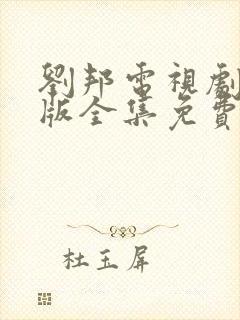 劉邦電視劇
版全集免費
杜玉屏